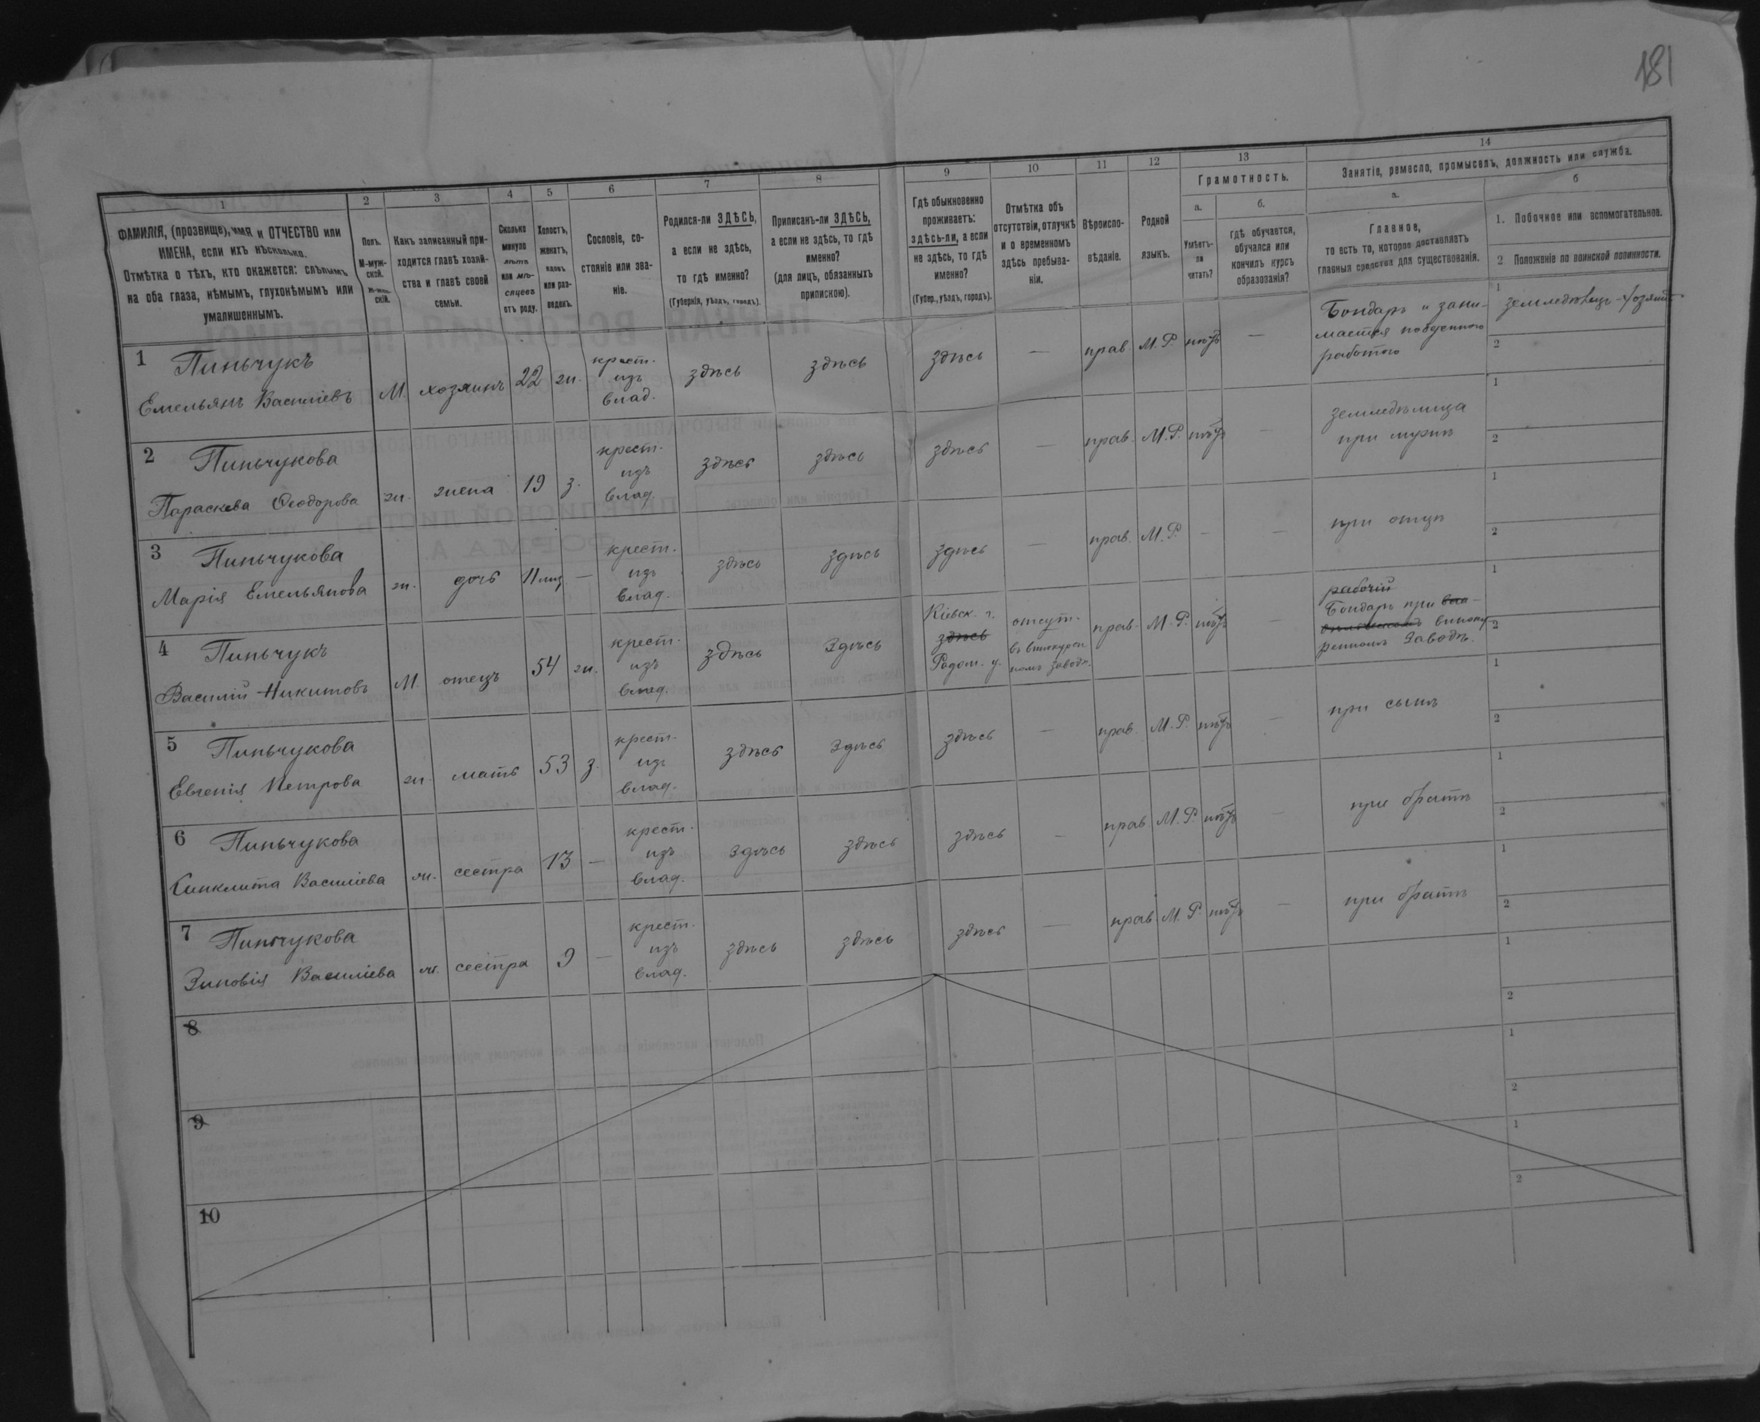 181
1
2
3
4
5
6
7
8
9
10
11
12
13
14
ФАМИЛІЯ, (прозвище), ИМЯ и ОТЧЕСТВО или
ИМЕНА, если ихъ нѣсколько.
Отмѣтка о тѣхъ, кто окажется: слѣпымъ
на оба глаза, нѣмымъ, глухонѣмымъ или
умалишеннымъ.
Полъ.
М-муж-
ской.
Ж-жен-
скій.
Какъ записанный при-
ходится главѣ хозяй-
ства и главѣ своей
семьи.
Сколько
минуло
лѣтъ
или мѣ-
сяцевъ
отъ роду.
Холостъ,
женатъ,
вдовъ
или раз-
веденъ.
Сословіе, со-
стояніе или зва-
ніе.
Родился-ли ЗДѢСЬ,
а если не здѣсь,
то гдѣ именно?
(Губернія, уѣздъ, городъ).
Приписанъ-ли ЗДѢСЬ,
а если не здѣсь, то гдѣ
именно?
(для лицъ, обязанныхъ
припискою).
Гдѣ обыкновенно
проживаетъ:
здѣсь-ли, а если
не здѣсь, то гдѣ
именно?
(Губер., уѣздъ, городъ).
Отмѣтка объ
отсутствіи, отлучкѣ
и о временномъ
здѣсь пребыва-
ніи.
Вѣроиспо-
вѣданіе.
Родной
языкъ.
Грамотность.
а.
Умѣетъ-
ли
читать?
б.
Гдѣ обучается,
обучался или
кончилъ курсъ
образованія?
Занятіе, ремесло, промыселъ, должность или служба.
а.
Главное,
то есть то, которое доставляетъ
главныя средства для существованія.
б
1. Побочное или вспомогательное.
2 Положеніе по воинской повинности.
1 Пиньчукъ
Емельянъ Василіевъ
М. хозяинъ 22 ж. крест. изъ влад. здѣсь здѣсь здѣсь — прав М.Р. нѣтъ —
Бондарь и зани-
мается поденною
работою
1 земледѣлецъ-хозяинъ
2
2 Пиньчукова
Параскева Ѳеодорова
ж. жена 19 з. крест. изъ влад. здѣсь здѣсь здѣсь — прав. М.Р. нѣтъ —
земледѣлица
при мужѣ
1
2
3 Пиньчукова
Марія Емельянова
ж. дочь 11 мѣс — крест. изъ влад. здѣсь здѣсь здѣсь — прав. М.Р. — — при отцѣ
1
2
4 Пиньчукъ
Василій Никитовъ
М. отецъ 54 ж. крест. изъ влад. здѣсь здѣсь
Кіевск. г.
здѣсь
Радом. у.
отсут.
въ винокурен
номъ заводѣ.
прав. М.Р. нѣтъ —
рабочій
Бондарь при
винокур
ренномъ заводѣ.
1
2
5 Пиньчукова
Евгенія Петрова
ж. мать 53 з. крест. изъ влад. здѣсь здѣсь здѣсь — прав. М.Р. нѣтъ — при сынѣ
1
2
6 Пиньчукова
Синклита Василіева
ж. сестра 13 — крест. изъ влад. здѣсь здѣсь здѣсь — прав. М.Р. нѣтъ — при братѣ
1
2
7 Пиньчукова
Зиновія Василіева
ж. сестра 9 — крест. изъ влад. здѣсь здѣсь здѣсь — прав. М.Р. нѣтъ — при братѣ
1
2
8
1
2
9
1
2
10
1
2